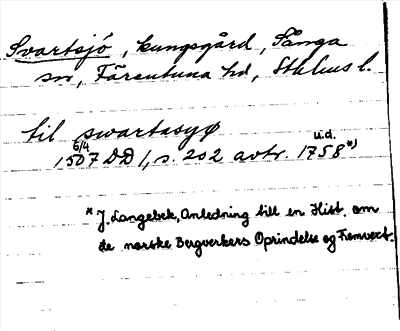 Svartsjö, kungsgård, Sånga
sn, Färentuna hd, Sthlms l.
til swartasyø
6/4 u.d.
1507 DD 1, s. 202 avtr. 1758*)
* J. Langebek, Anledning till en Hist. om
de norske Bergverkers Oprindelse og Fremvext.